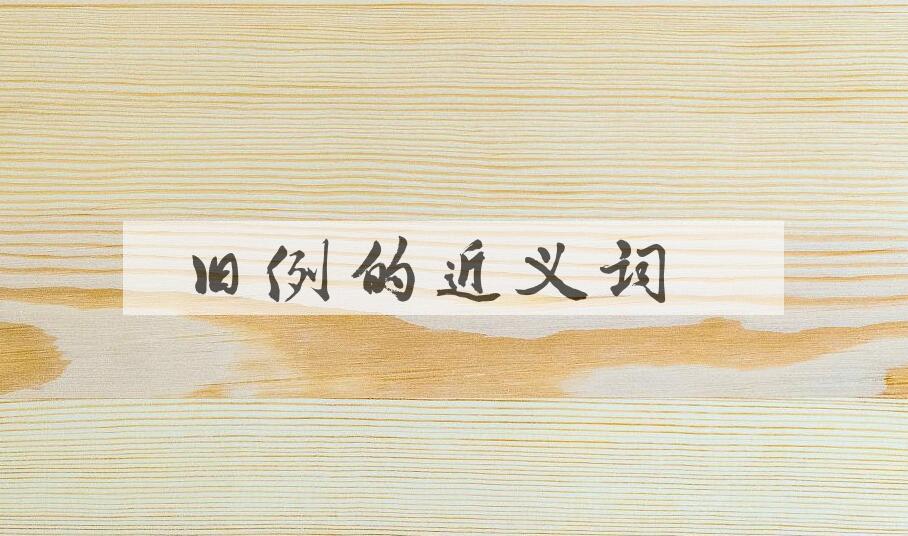 旧例的近义词